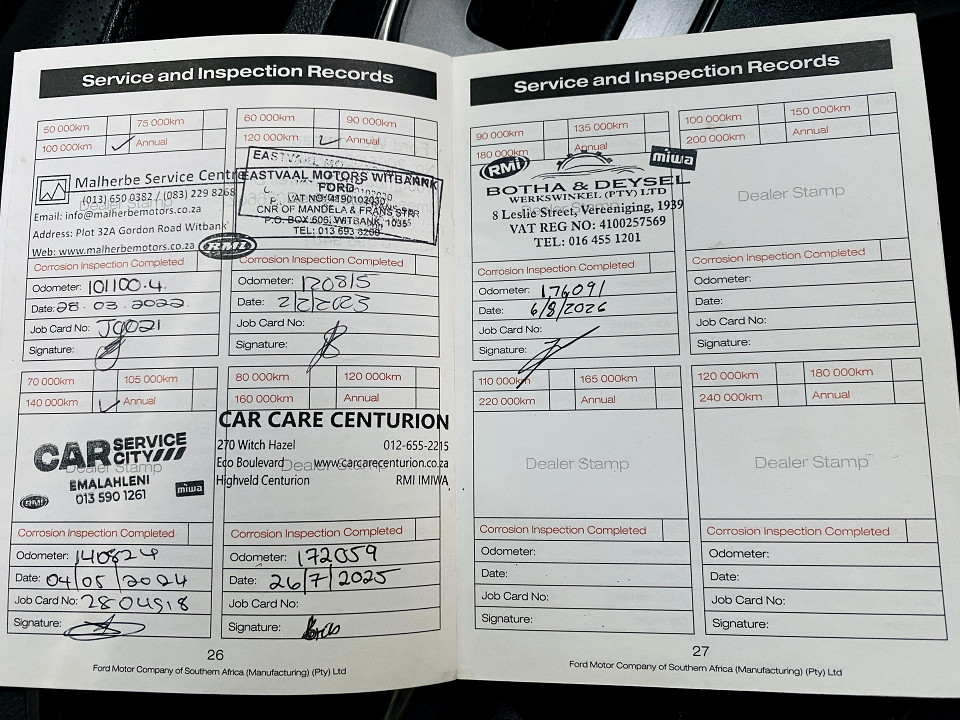 Service and Inspection Records
50 000km 75 000km
100 000km ✓ Annual
Malherbe Service Centre
(013) 650 0382 / (083) 229 8268
Email: info@malherbemotors.co.za
Address: Plot 32A Gordon Road Witbank
Web: www.malherbemotors.co.za
RMI
Corrosion Inspection Completed
Odometer: 101100.4.
Date: 28.03.2022.
Job Card No: JC021
Signature:
60 000km 90 000km
120 000km ✓ Annual
EASTVAAL MOTORS WITBANK
FORD
VAT NO: 4190102030
CNR OF MANDELA & FRANS STR
P.O. BOX 606, WITBANK, 1035
TEL: 013 693 8200
Corrosion Inspection Completed
Odometer: 120815
Date: 2/2/2023
Job Card No:
Signature:
70 000km 105 000km
140 000km ✓ Annual
Dealer Stamp
CAR SERVICE
CITY
EMALAHLENI
013 590 1261
RMI miwa
Corrosion Inspection Completed
Odometer: 140824
Date: 04/05/2024
Job Card No: 2804918
Signature:
80 000km 120 000km
160 000km Annual
CAR CARE CENTURION
270 Witch Hazel 012-655-2215
Eco Boulevard www.carcarecenturion.co.za
Highveld Centurion RMI IMIWA
Dealer Stamp
Corrosion Inspection Completed
Odometer: 172059
Date: 26/7/2025
Job Card No:
Signature:
26
Ford Motor Company of Southern Africa (Manufacturing) (Pty) Ltd
Service and Inspection Records
90 000km 135 000km
180 000km Annual
RMI miwa
BOTHA & DEYSEL
WERKSWINKEL (PTY) LTD
8 Leslie Street, Vereeniging, 1939
VAT REG NO: 4100257569
TEL: 016 455 1201
Corrosion Inspection Completed
Odometer: 176091
Date: 6/8/2026
Job Card No:
Signature:
100 000km 150 000km
200 000km Annual
Dealer Stamp
Corrosion Inspection Completed
Odometer:
Date:
Job Card No:
Signature:
110 000km 165 000km
220 000km Annual
Dealer Stamp
Corrosion Inspection Completed
Odometer:
Date:
Job Card No:
Signature:
120 000km 180 000km
240 000km Annual
Dealer Stamp
Corrosion Inspection Completed
Odometer:
Date:
Job Card No:
Signature:
27
Ford Motor Company of Southern Africa (Manufacturing) (Pty) Ltd